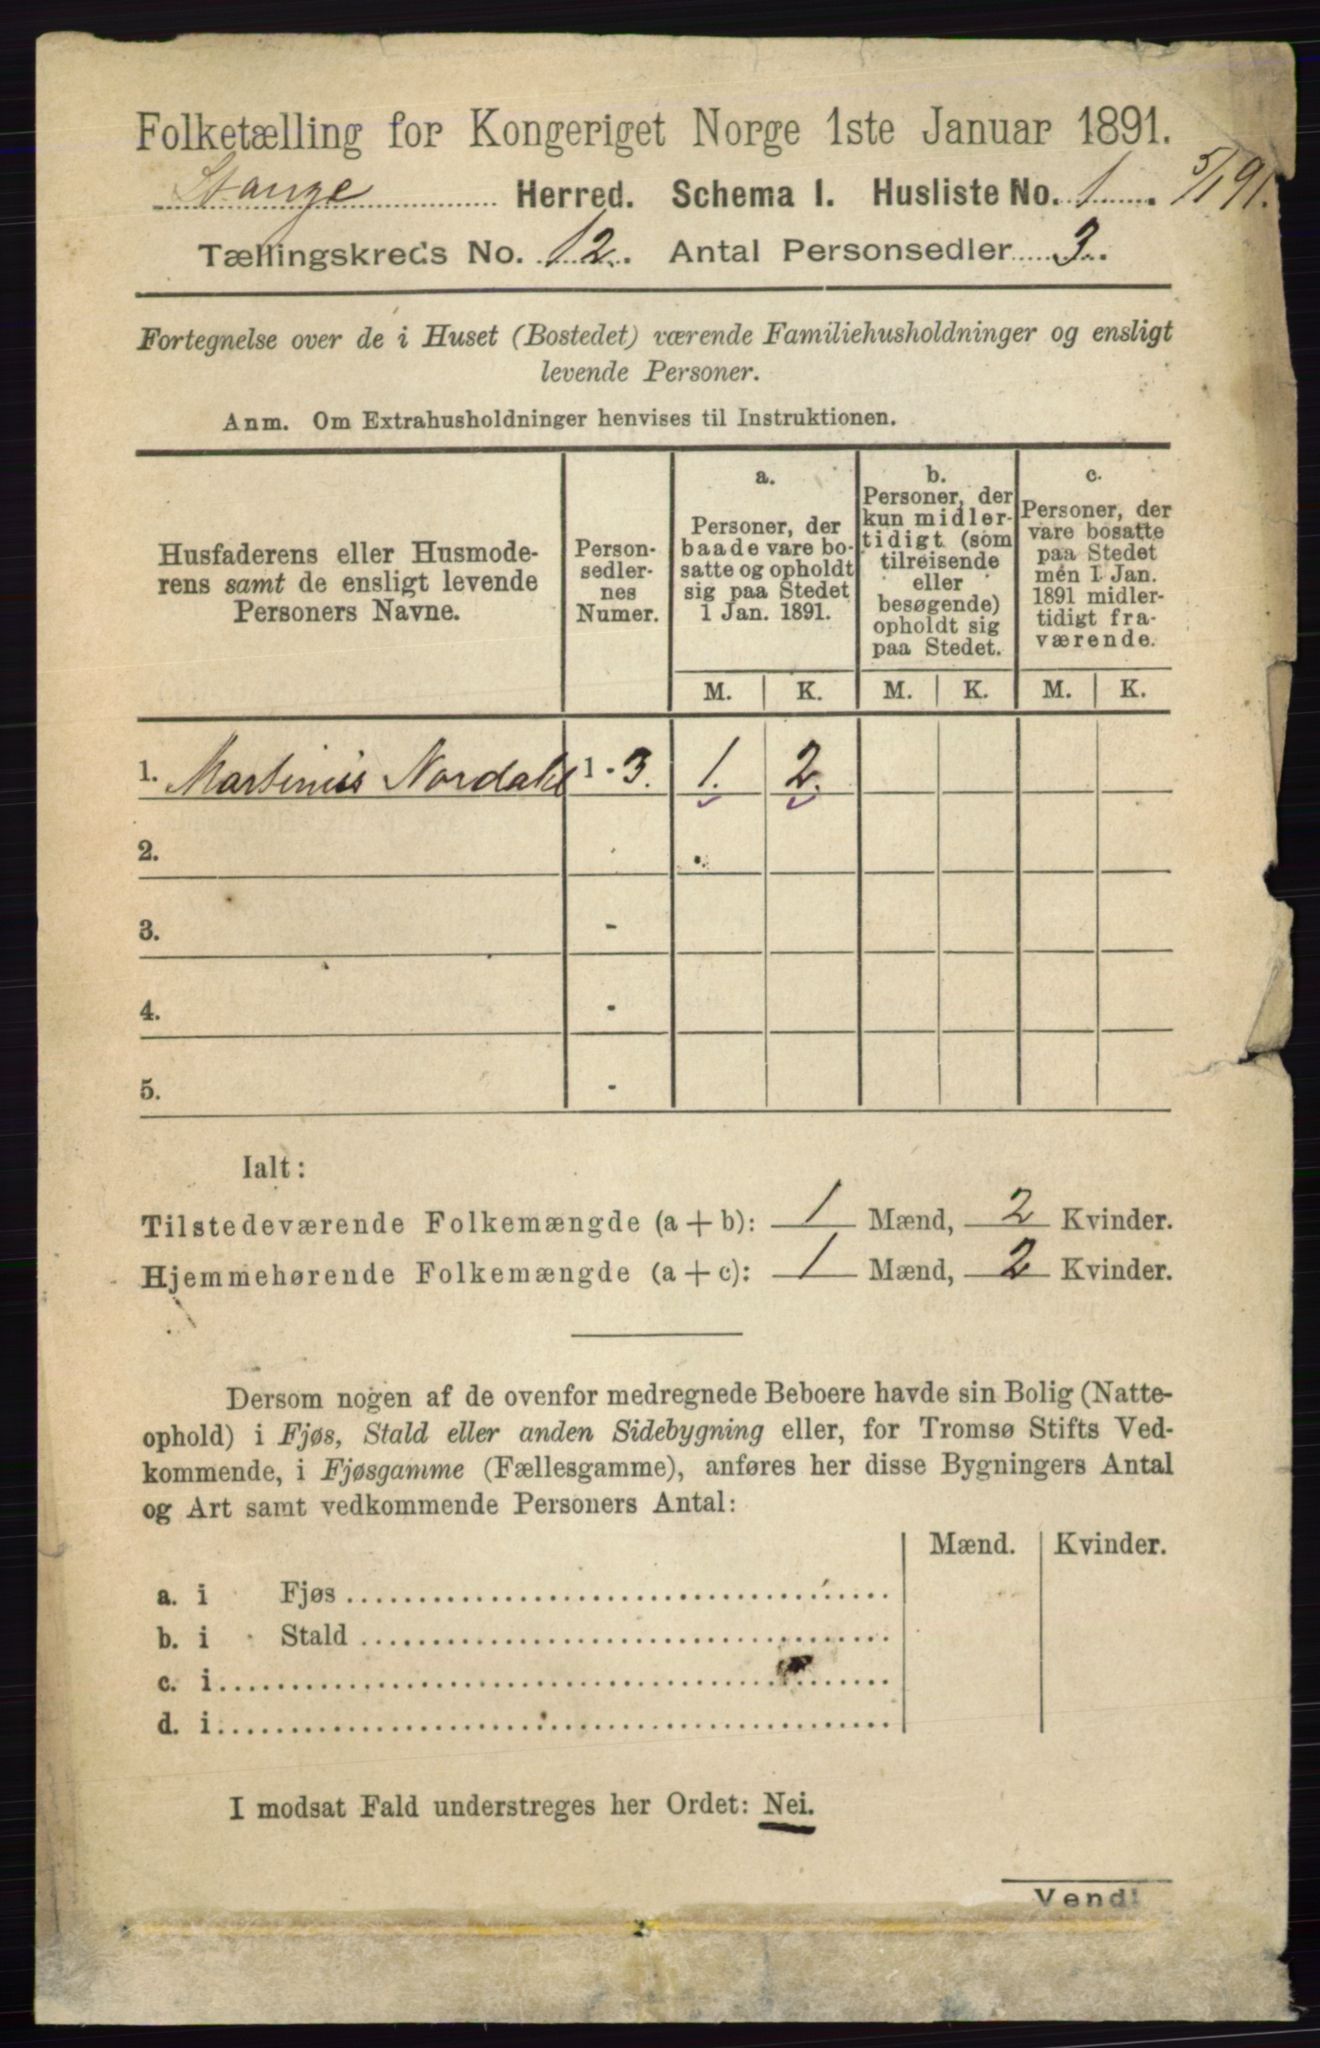 Folketælling for Kongeriget Norge 1ste Januar 1891.
Stange Herred. Schema I. Husliste No. 1. 5/1 91.
Tællingskreds No. 12. Antal Personsedler 3.
Fortegnelse over de i Huset (Bostedet) værende Familiehusholdninger og ensligt
levende Personer.
Anm. Om Extrahusholdninger henvises til Instruktionen.
Husfaderens eller Husmode-
rens samt de ensligt levende
Personers Navne.
Person-
sedler-
nes
Numer.
a.
Personer, der
baade vare bo-
satte og opholdt
sig paa Stedet
1 Jan. 1891.
b.
Personer, der
kun midler-
tidigt (som
tilreisende
eller
besøgende)
opholdt sig
paa Stedet.
c.
Personer, der
vare bosatte
paa Stedet
men 1 Jan.
1891 midler-
tidigt fra-
værende.
M. K. M. K. M. K.
1. Martinius Nordahl 1 - 3. 1. 2.
2.
3. -
4. -
5. -
Ialt:
Tilstedeværende Folkemængde (a + b): 1 Mænd, 2 Kvinder.
Hjemmehørende Folkemængde (a + c): 1 Mænd, 2 Kvinder.
Dersom nogen af de ovenfor medregnede Beboere havde sin Bolig (Natte-
ophold) i Fjøs, Stald eller anden Sidebygning eller, for Tromsø Stifts Ved-
kommende, i Fjøsgamme (Fællesgamme), anføres her disse Bygningers Antal
og Art samt vedkommende Personers Antal:
Mænd. Kvinder.
a. i Fjøs
b. i Stald
c. i
d. i
I modsat Fald understreges her Ordet: Nei.
Vend!